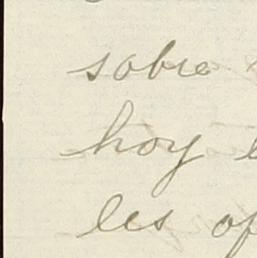 sobre
hoy
les